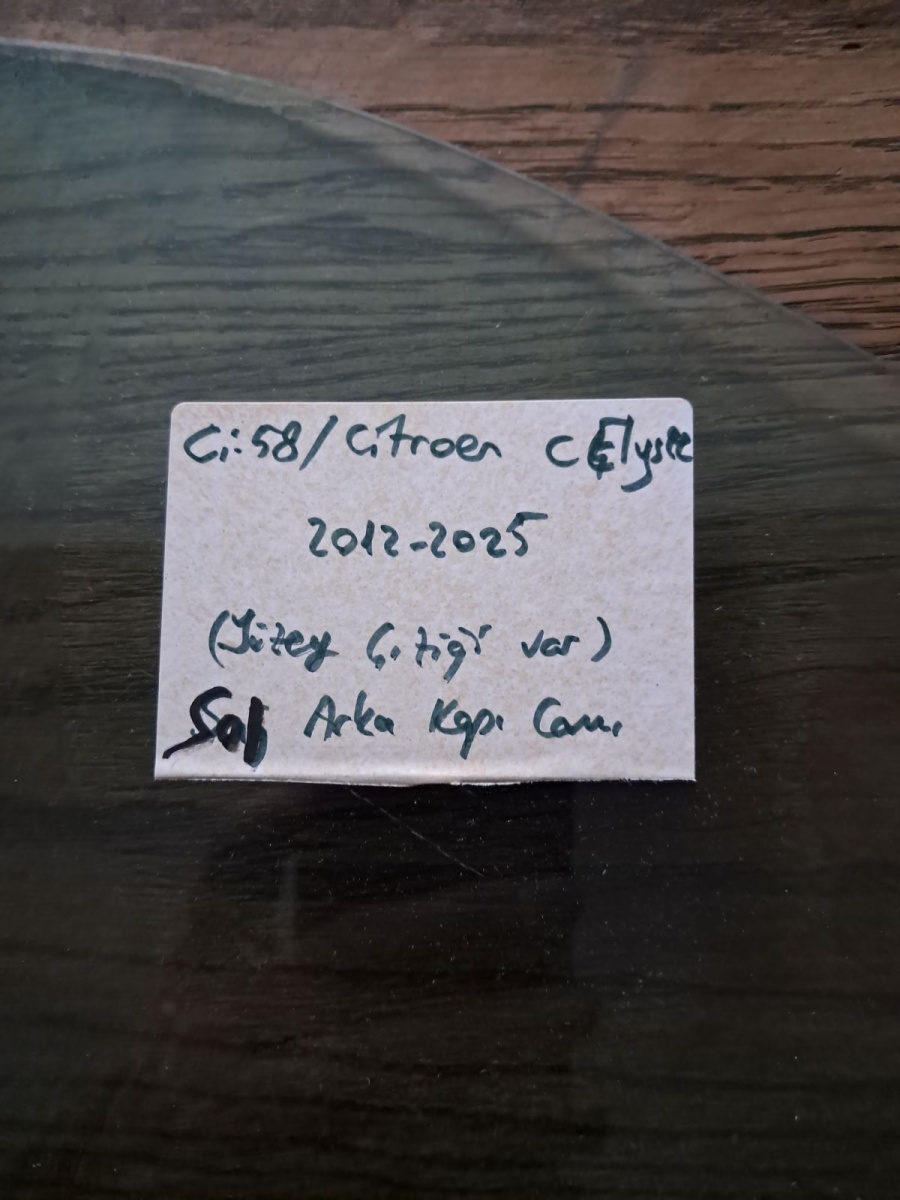 Ci:58/Citroen C Elysee
2012-2025
(Yüzey Çiziği var)
Sol Arka Kapı Camı